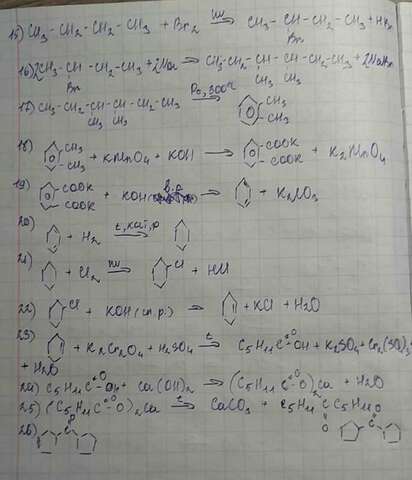 15) CH₃ - CH₂ - CH₂ - CH₃ + Br₂ →(hν) CH₃ - CH - CH₂ - CH₃ + HBr
Br
16) 2CH₃ - CH - CH₂ - CH₃ + 2Na → CH₃ - CH₂ - CH - CH - CH₂ - CH₃ + 2NaBr
Br CH₃ CH₃
17) CH₃ - CH₂ - CH - CH - CH₂ - CH₃ →(300°C) CH₃ CH₃
CH₃ CH₃
18) CH₃ CH₃ + KMnO₄ + KOH → COOK COOK + K₂MnO₄
19) COOK COOK + KOH → + K₂CO₃
20) + H₂ →(t, кат, p)
21) + Cl₂ →(hν) Cl + HCl
22) Cl + KOH (сп.р.) → + KCl + H₂O
23) + K₂Cr₂O₄ + H₂SO₄ →(t) C₅H₁₁C=O-OH + K₂SO₄ + Cr₂(SO₄)₃
+ H₂O
24) C₅H₁₁C=O-OH + Ca(OH)₂ → (C₅H₁₁C=O-O)₂Ca + H₂O
25) (C₅H₁₁C=O-O)₂Ca →(t) CaCO₃ + C₅H₁₁ C C₅H₁₁ O
O
26) C=O C=O